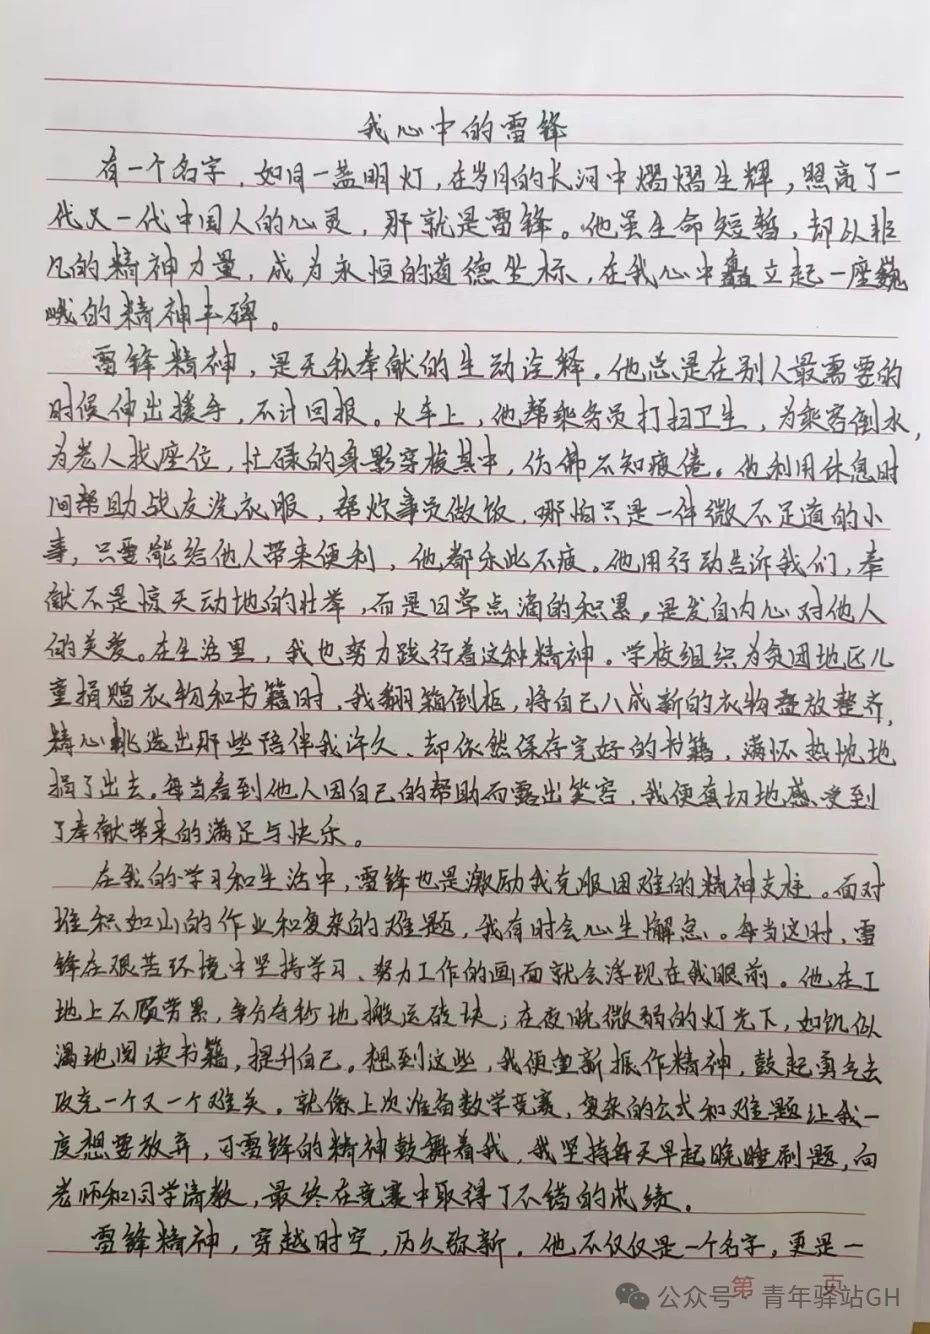 我心中的雷锋
有一个名字，如同一盏明灯，在岁月的长河中熠熠生辉，照亮了一
代又一代中国人的心灵，那就是雷锋。他虽生命短暂，却以非
凡的精神力量，成为永恒的道德坐标，在我心中矗立起一座巍
峨的精神丰碑。
雷锋精神，是无私奉献的生动诠释。他总是在别人最需要的
时候伸出援手，不计回报。火车上，他帮乘务员打扫卫生，为乘客倒水，
为老人找座位，忙碌的身影穿梭其中，仿佛不知疲倦。他利用休息时
间帮助战友洗衣服，帮炊事员做饭，哪怕只是一件微不足道的小
事，只要能给他人带来便利，他都乐此不疲。他用行动告诉我们，奉
献不是惊天动地的壮举，而是日常点滴的积累，是发自内心对他人
的关爱。在生活里，我也努力践行着这种精神。学校组织为贫困地区儿
童捐赠衣物和书籍时，我翻箱倒柜，将自己八成新的衣物叠放整齐，
精心挑选出那些陪伴我许久、却依然保存完好的书籍，满怀热忱地
捐了出去。每当看到他人因自己的帮助而露出笑容，我便真切地感受到
了奉献带来的满足与快乐。
在我的学习和生活中，雷锋也是激励我克服困难的精神支柱。面对
堆积如山的作业和复杂的难题，我有时会心生懈怠。每当这时，雷
锋在艰苦环境中坚持学习、努力工作的画面就会浮现在我眼前。他在工
地上不顾劳累，争分夺秒地搬运砖块；在夜晚微弱的灯光下，如饥似
渴地阅读书籍，提升自己。想到这些，我便重新振作精神，鼓起勇气去
攻克一个又一个难关。就像上次准备数学竞赛，复杂的公式和难题让我一
度想要放弃，可雷锋的精神鼓舞着我，我坚持每天早起晚睡刷题，向
老师和同学请教，最终在竞赛中取得了不错的成绩。
雷锋精神，穿越时空，历久弥新。他不仅仅是一个名字，更是一
第 页
公众号·青年驿站GH